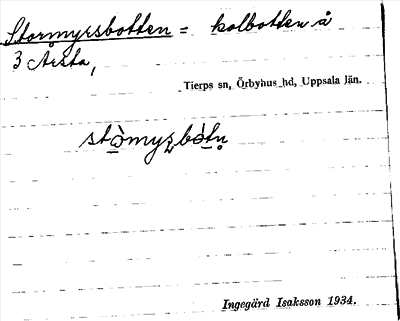 Stormyrsbotten = kolbotten å
3 Årsta,
Tierps sn, Örbyhus hd, Uppsala län.
stò̱myʂbò̱tn̥
Ingegärd Isaksson 1934.